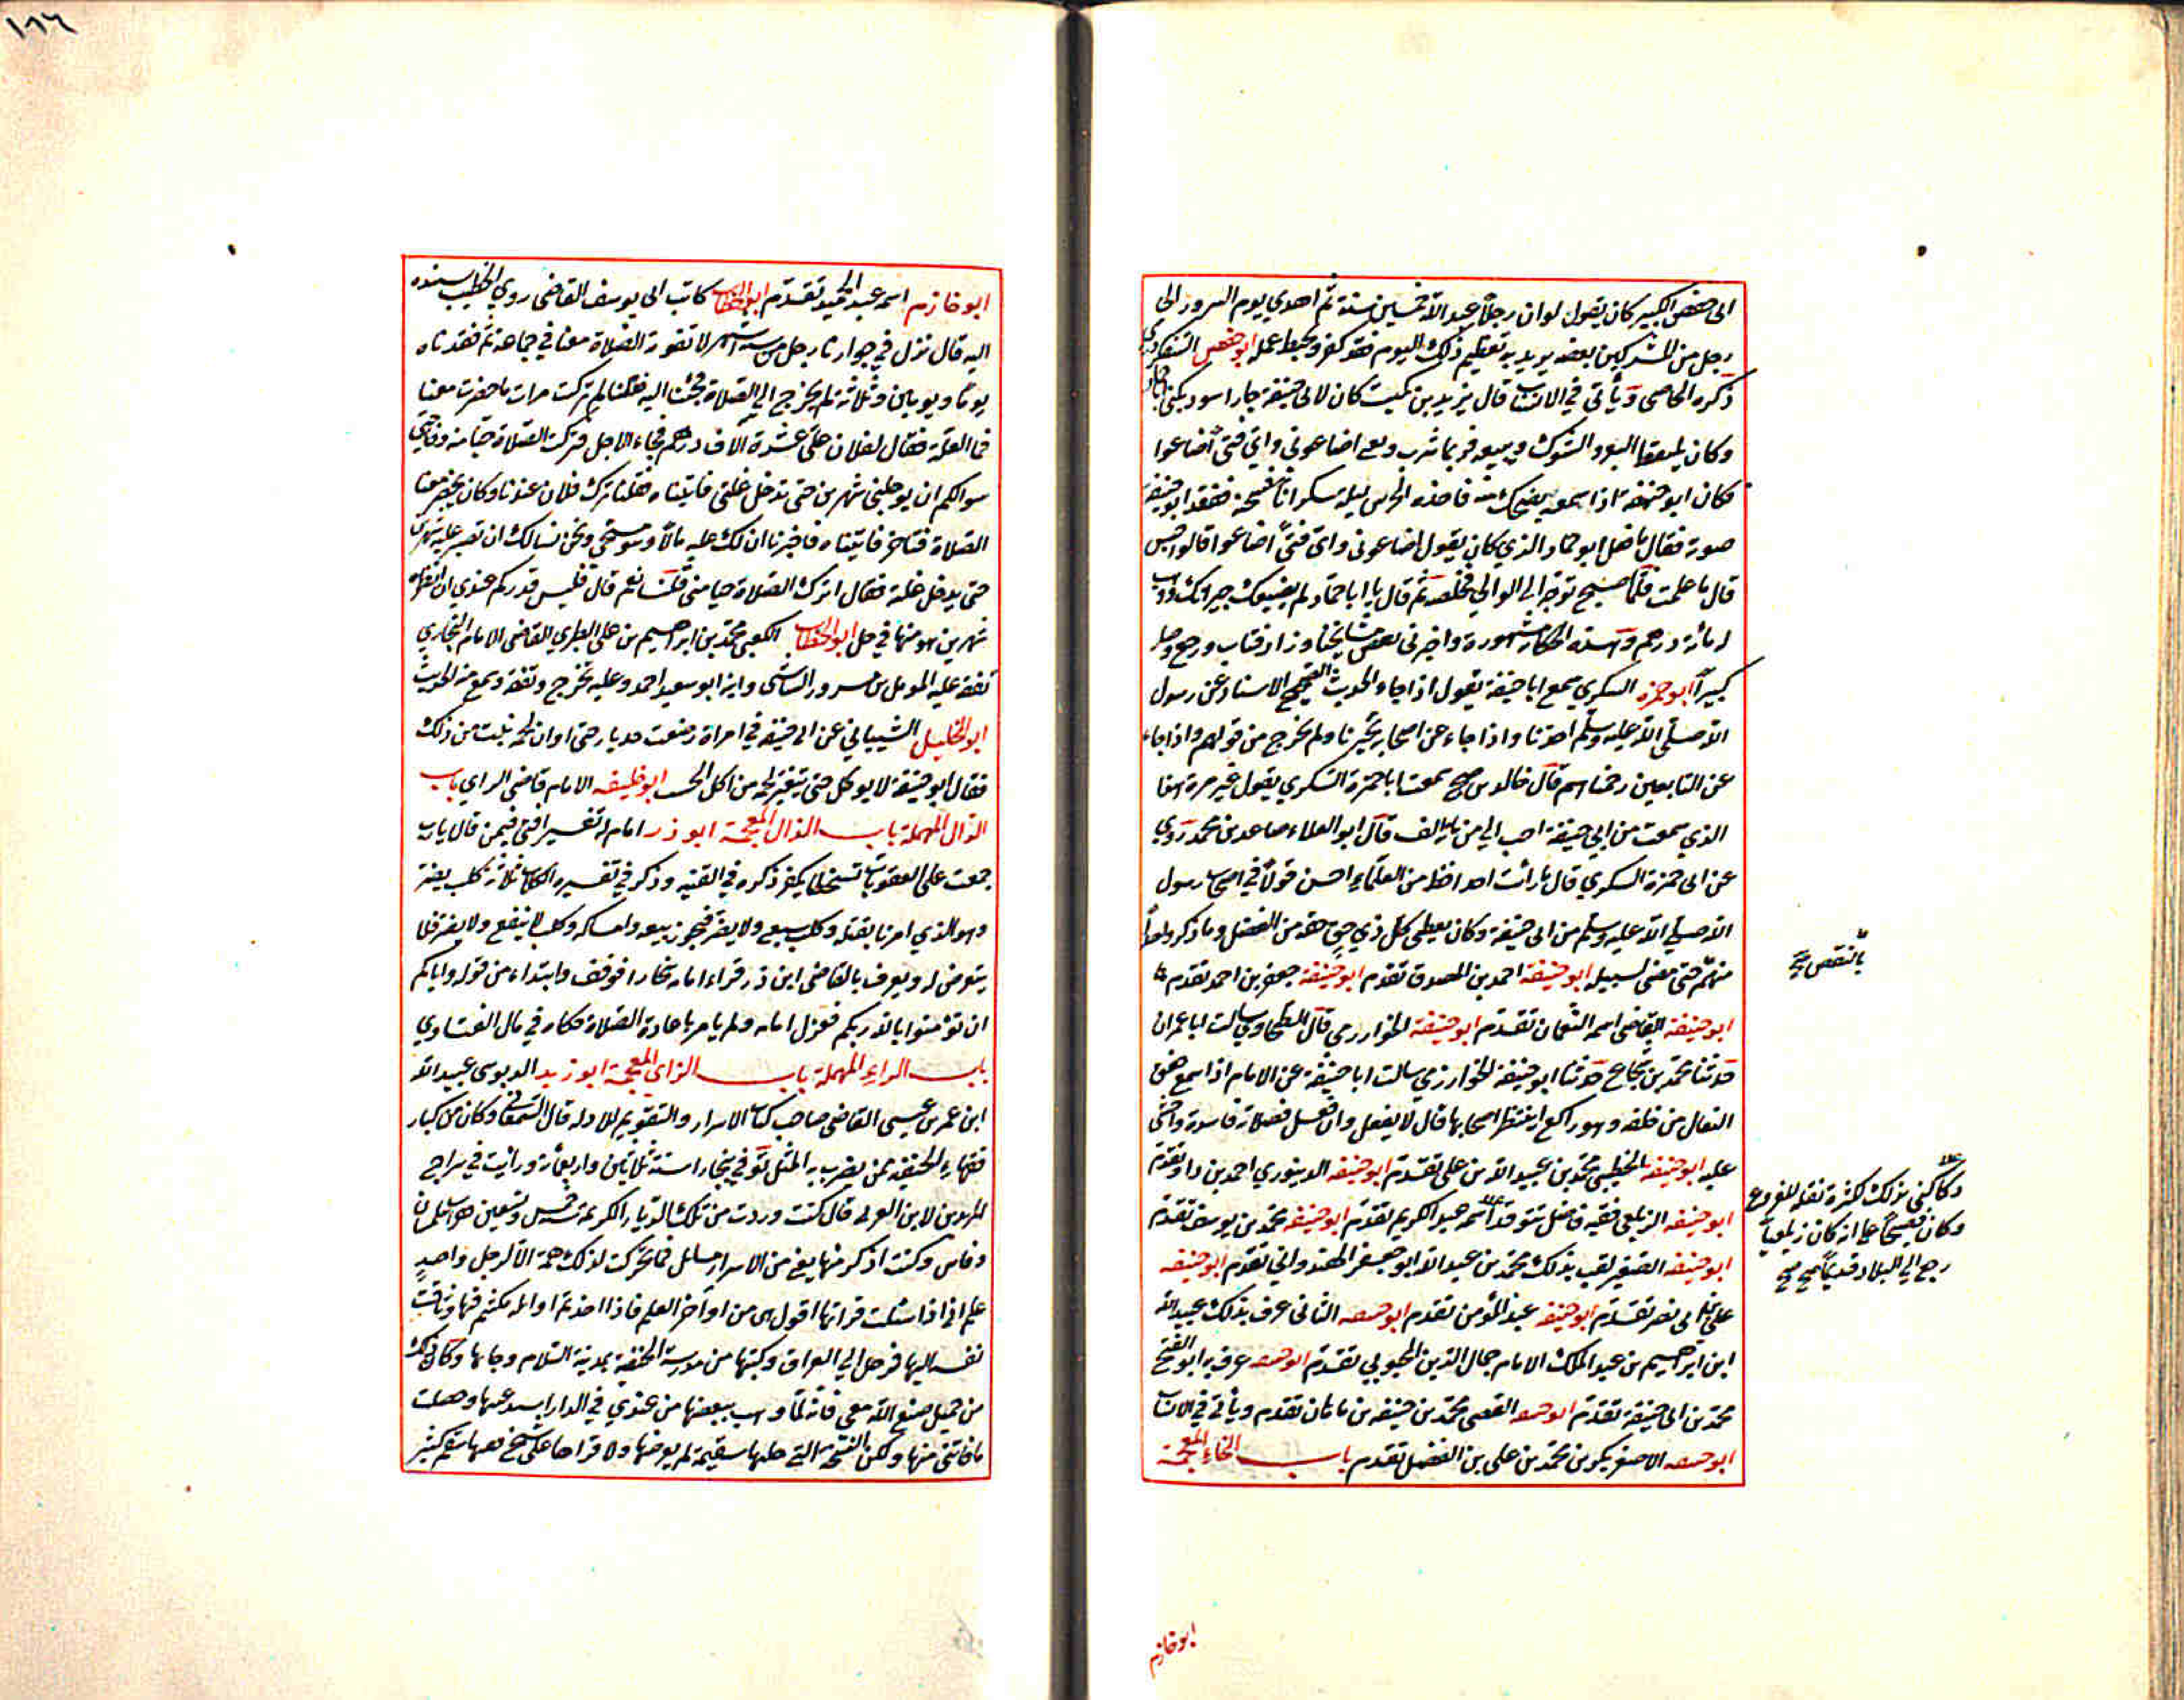 ابى حفص الكبير كان يقول لو ان رجلاً عبد الله خمسين سنة ثم اهدي يوم السرور الى
رجل من المشركين بعضه يريد به تعظيم ذلك اليوم فقد كفر وحبط عمله ابو حفص السفكردري
ذكره الخاصى ويأتى في الانساب قال يزيد بن كميت كان لابى حنيفة جار اسود يكنى ابا حماد
وكان يلتقط البعر والشوك ويبيعه فربما شرب ومع اضاعونى واي فتى اضاعوا
فكان ابو حنيفة اذا سمعه يضحك منه فاخذه الحرس ليلة سكرانا فسجنه ففقد ابو حنيفة
صوته فقال ما فعل ابو حماد الذي كان يقول اضاعونى واي فتى اضاعوا قالوا حبس
قال ما علمت فلما اصبح توجه الى الوالي فخلصه ثم قال يا ابا حماد لم يضيعوك جيرانك ووهب
له مأته درهم وهذه الحكاية مشهورة واخبرني بعض مشايخنا وزاد فتاب ورجع وصار
كبيراً ابو حمزه السكري سمع ابا حنيفة يقول اذا جاء الحديث الصحيح الاسناد عن رسول
الله صلى الله عليه وسلم اخذنا واذا جاء عن اصحابه تخيرنا ولم نخرج من قولهم واذا جاء
عن التابعين زحمناهم قال خالد بن صبيح سمعت ابا حمزة السكري يقول غير مرة هذا
الذي سمعت من ابي حنيفة احب الي من مائة الف قال ابو العلاء صاعد بن محمد روي
عن ابى حمزة السكري قال ما رأيت احدا قط من العلماء احسن قولاً في اصحاب رسول
الله صلى الله عليه وسلم من ابى حنيفة وكان يعطى كل ذي حق حقه من الفضل وما ذكر واحداً
منهم حتى مضى لسبيله ابو حنيفة احمد بن الصدوق تقدم ابو حنيفة جعفر بن احمد تقدم
ابو حنيفة القاضى اسمه النعمان تقدم ابو حنيفة الخوارزمي قال الطحاوي سالت ابا عمران
حدثنا محمد بن شجاع حدثنا ابو حنيفة الخوارزمي سالت ابا حنيفة عن الامام اذا سمع خفق
النعال من خلفه وهو راكع اينتظر اصحابها قال لا يفعل وان فعل فصلاته فاسدة واخشى
عليه ابو حنيفه الخطيبى محمد بن عبيد الله بن على تقدم ابو حنيفه الدينوري احمد بن داود تقدم
ابو حنيفه الزيلعي فقيه فاضل اسمه عبد الكريم تقدم ابو حنيفه محمد بن يوسف تقدم
ابو حنيفه الصغير لقب بذلك محمد بن عبد الله ابو جعفر الهندواني تقدم ابو حنيفه
على بن ابى نصر تقدم ابو حنيفه عبد المؤمن تقدم ابو حنيفه الثانى عرف بذلك عبيد الله
ابن ابراهيم بن عبد الملك الامام جمال الدين المحبوبي تقدم ابو حنيفه عرف به ابو الفتح
محمد بن ابى حنيفة تقدم ابو حنيفه القصبى محمد بن حنيفه بن ماهان تقدم ويأتي في الانساب
ابو حنيفه الاصغر بكر بن محمد بن على بن الفضل تقدم باب الخاء المعجمة
بالنقص صح
وكاكنى بذلك لكثرة نقله للفروع
وكان فصيحاً على انه كان زيلعياً
رجع الى البلاد قديماً صح
ابو خازم
١٨٦
ابو خازم اسمه عبد الحميد تقدم ابو الخطاب كاتب ابى يوسف القاضى روي الخطيب بسنده
اليه قال نزل في جوارنا رجل ستة اشهر لا تفوته الصلاة معنا في جماعة ثم فقدناه
يوما ويومين وثلاثة لم يخرج الى الصلاة فجئنا اليه فقلنا لم تركت مرات ما حضرت معنا
فما العلة فقال لفلان علي عشرة آلاف درهم فجاء الاجل فتركت الصلاة حيا منه وفاحبى
سوالكم ان يوجلنى شهرين حتى تدخل غلتى فاتيناه فقلنا نزل فلان عندنا وكان يحضر معنا
الصلاة فتاخر فاتيناه فاخبرنا ان لك عليه مالاً وهو مستحى ونحن نسالك ان تصبر عليه شهرين
حتى يدخل غلته فقال اترك الصلاة حيا منى قلنا نعم قال فليس قدركم عندي ان انظره
شهرين هو منها في حل ابو الخطاب الكعبى محمد بن ابراهيم بن على الطبري القاضى الامام البخاري
تفقه عليه المومل بن مسرور الشاشى وابنه ابو سعيد احمد وعليه تخرج وتفقه وسمع منه الحديث
ابو الخليل الشيبانى عن ابى حنيفة في امراة رضعت جديا رضاعا وان لحمه نبت من ذلك
فقال ابو حنيفة لا يوكل حتى يتغير لحمه من اكل الحب ابو خليفه الامام قاضى الراي باب
الدال المهملة باب الذال المعجمة ابو ذر امام له تفسير افتى فيمن قال يا رب
جمعت على العقوبات تسخطا يكفر ذكره في القنيه وذكر في تفسيره الكلاب ثلاثة كلب يضر
وهو الذي امرنا بقتله وكلب ينفع ولا يضر فيجوز بيعه وامساكه وكلب لا ينفع ولا يضر فلا
يتعرض له ويعرف بالقاضى ابن ذر قراء امامه بخارا فوقف وابتداء من قوله واياكم
ان تؤمنوا بالله ربكم فعزل امامه ولم يامر باعادة الصلاة حكاه في مال الفتاوي
باب الراء المهملة باب الزاى المعجمة ابو زيد الدبوسى عبيد الله
ابن عمر بن عيسى القاضى صاحب كتاب الاسرار والتقويم للادلة قال السمعانى وكان من كبار
فقهاء الحنيفه ممن يضرب به المثل توفي ببخارا سنة ثلاثين واربعمأة ورايت في سراج
المريدين لابن العربي قال كنت وردت من تلك الديار الكريمة سنة خمس وتسعين هو اسلمان
وفاس وكنت اذكر منها يعنى من الاسرار مسائل فما تحركت لذلك همة الا لرجل واحد
علم انى اذا سئلت قراتها اقول هى من اواخر العلم فاذا اخذتم اوائله مكنتم فيها وتاقت
نفسه اليها فرحل الى العراق وكتبها من مدرسة الحنفية بمدينة السلام وجابها وكان ذلك
من جميل صنع الله معى فانه لما وهب ببعضها من عندي في الدار وصلت
ما فاتنى منها ولكن النسخة التي جلبها سقيمة لم يعرضها ولا قراها على شيخ سقم كثير